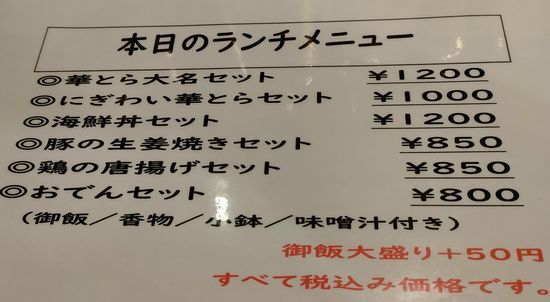 本日のランチメニュー
◎華とら大名セット ¥1200
◎にぎわい華とらセット ¥1000
◎海鮮丼セット ¥1200
◎豚の生姜焼きセット ¥850
◎鶏の唐揚げセット ¥850
◎おでんセット ¥800
(御飯/香物/小鉢/味噌汁付き)
御飯大盛り+50円
すべて税込み価格です。